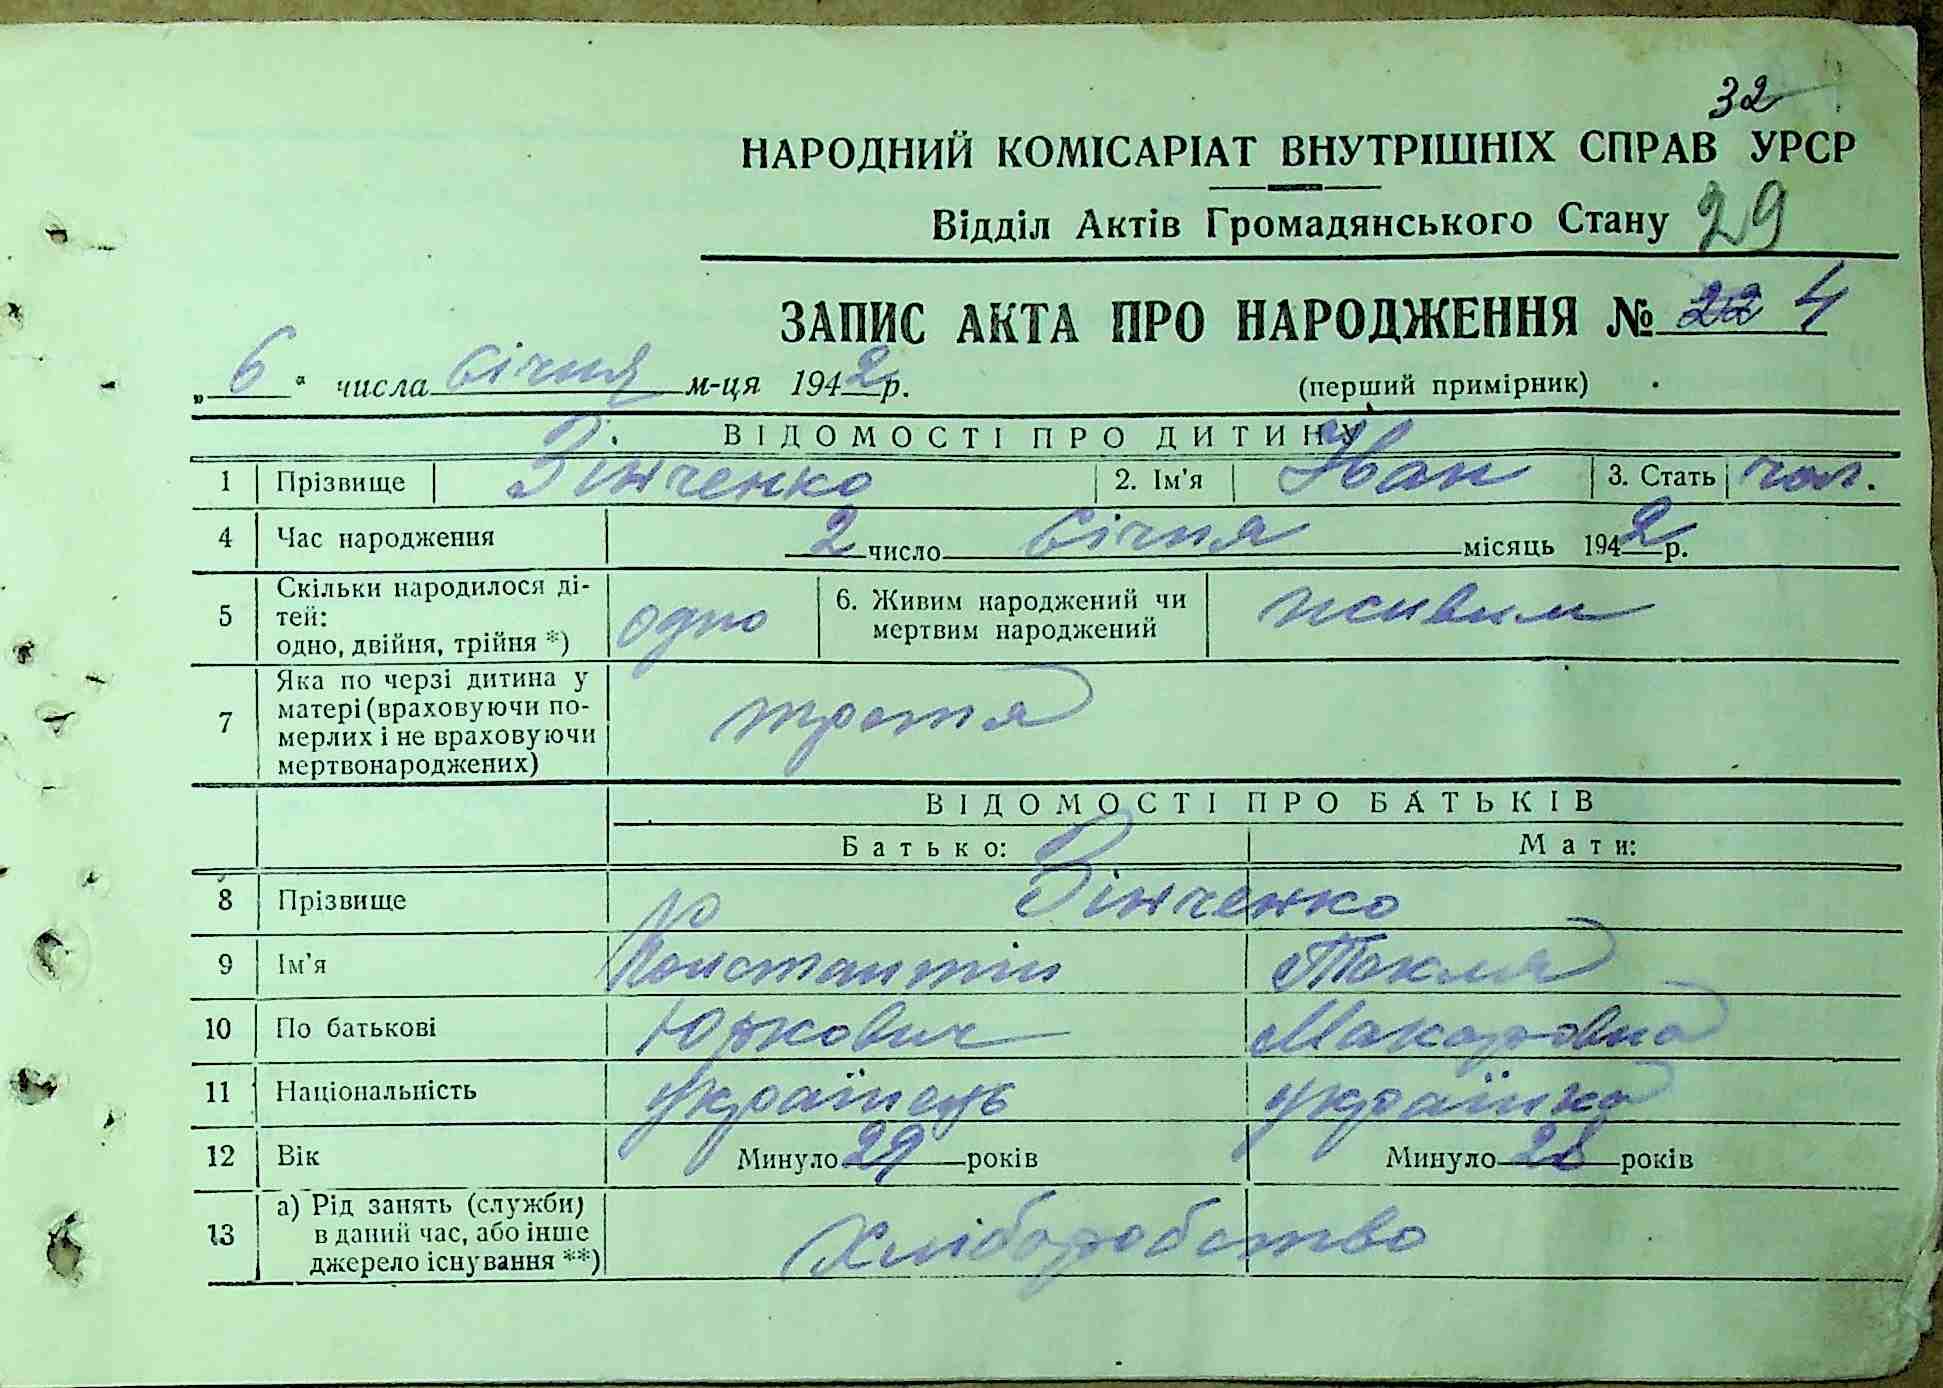 32
НАРОДНИЙ КОМІСАРІАТ ВНУТРІШНІХ СПРАВ УРСР
Відділ Актів Громадянського Стану 29
ЗАПИС АКТА ПРО НАРОДЖЕННЯ № 22 4
„6" числа січня м-ця 1942 р.
(перший примірник)
ВІДОМОСТІ ПРО ДИТИНУ
1 Прізвище Зінченко 2. Ім'я Іван 3. Стать чол.
4 Час народження 2 число січня місяць 1942 р.
5 Скільки народилося ді-
тей:
одно, двійня, трійня *) одно 6. Живим народжений чи
мертвим народжений живим
7 Яка по черзі дитина у
матері (враховуючи по-
мерлих і не враховуючи
мертвонароджених) третя
ВІДОМОСТІ ПРО БАТЬКІВ
Батько: Мати:
8 Прізвище Зінченко
9 Ім'я Константин Текля
10 По батькові Юхкович Макаровна
11 Національність українець українка
12 Вік Минуло 29 років Минуло 28 років
13 а) Рід занять (служби)
в даний час, або інше
джерело існування **) хліборобство